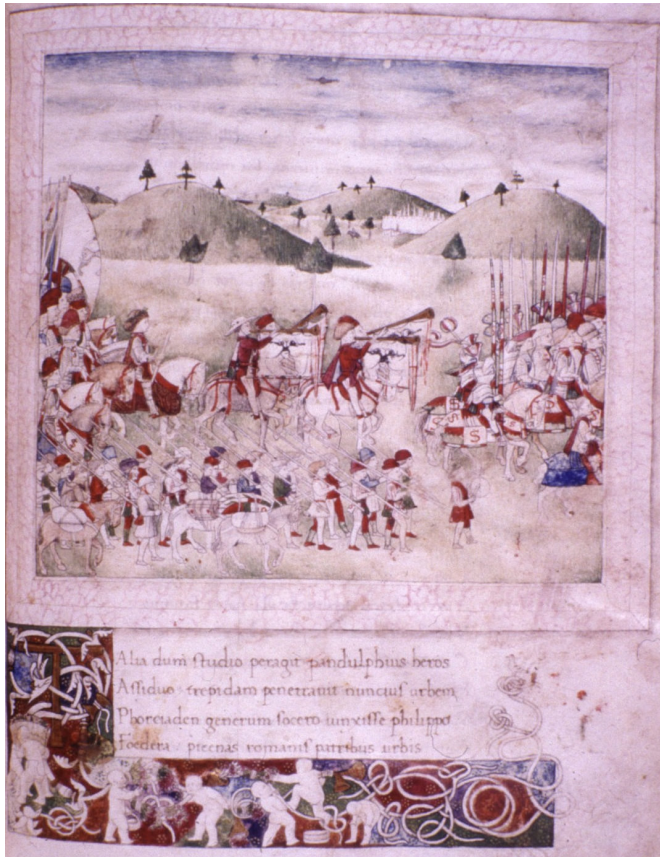 TAlia dum studio peragit pandulphius heros
Assiduo trepidam penetrauit nuncius urbem
Phorciaden generum socero iunxisse philippo
Foedera picenas romanis patribus urbis